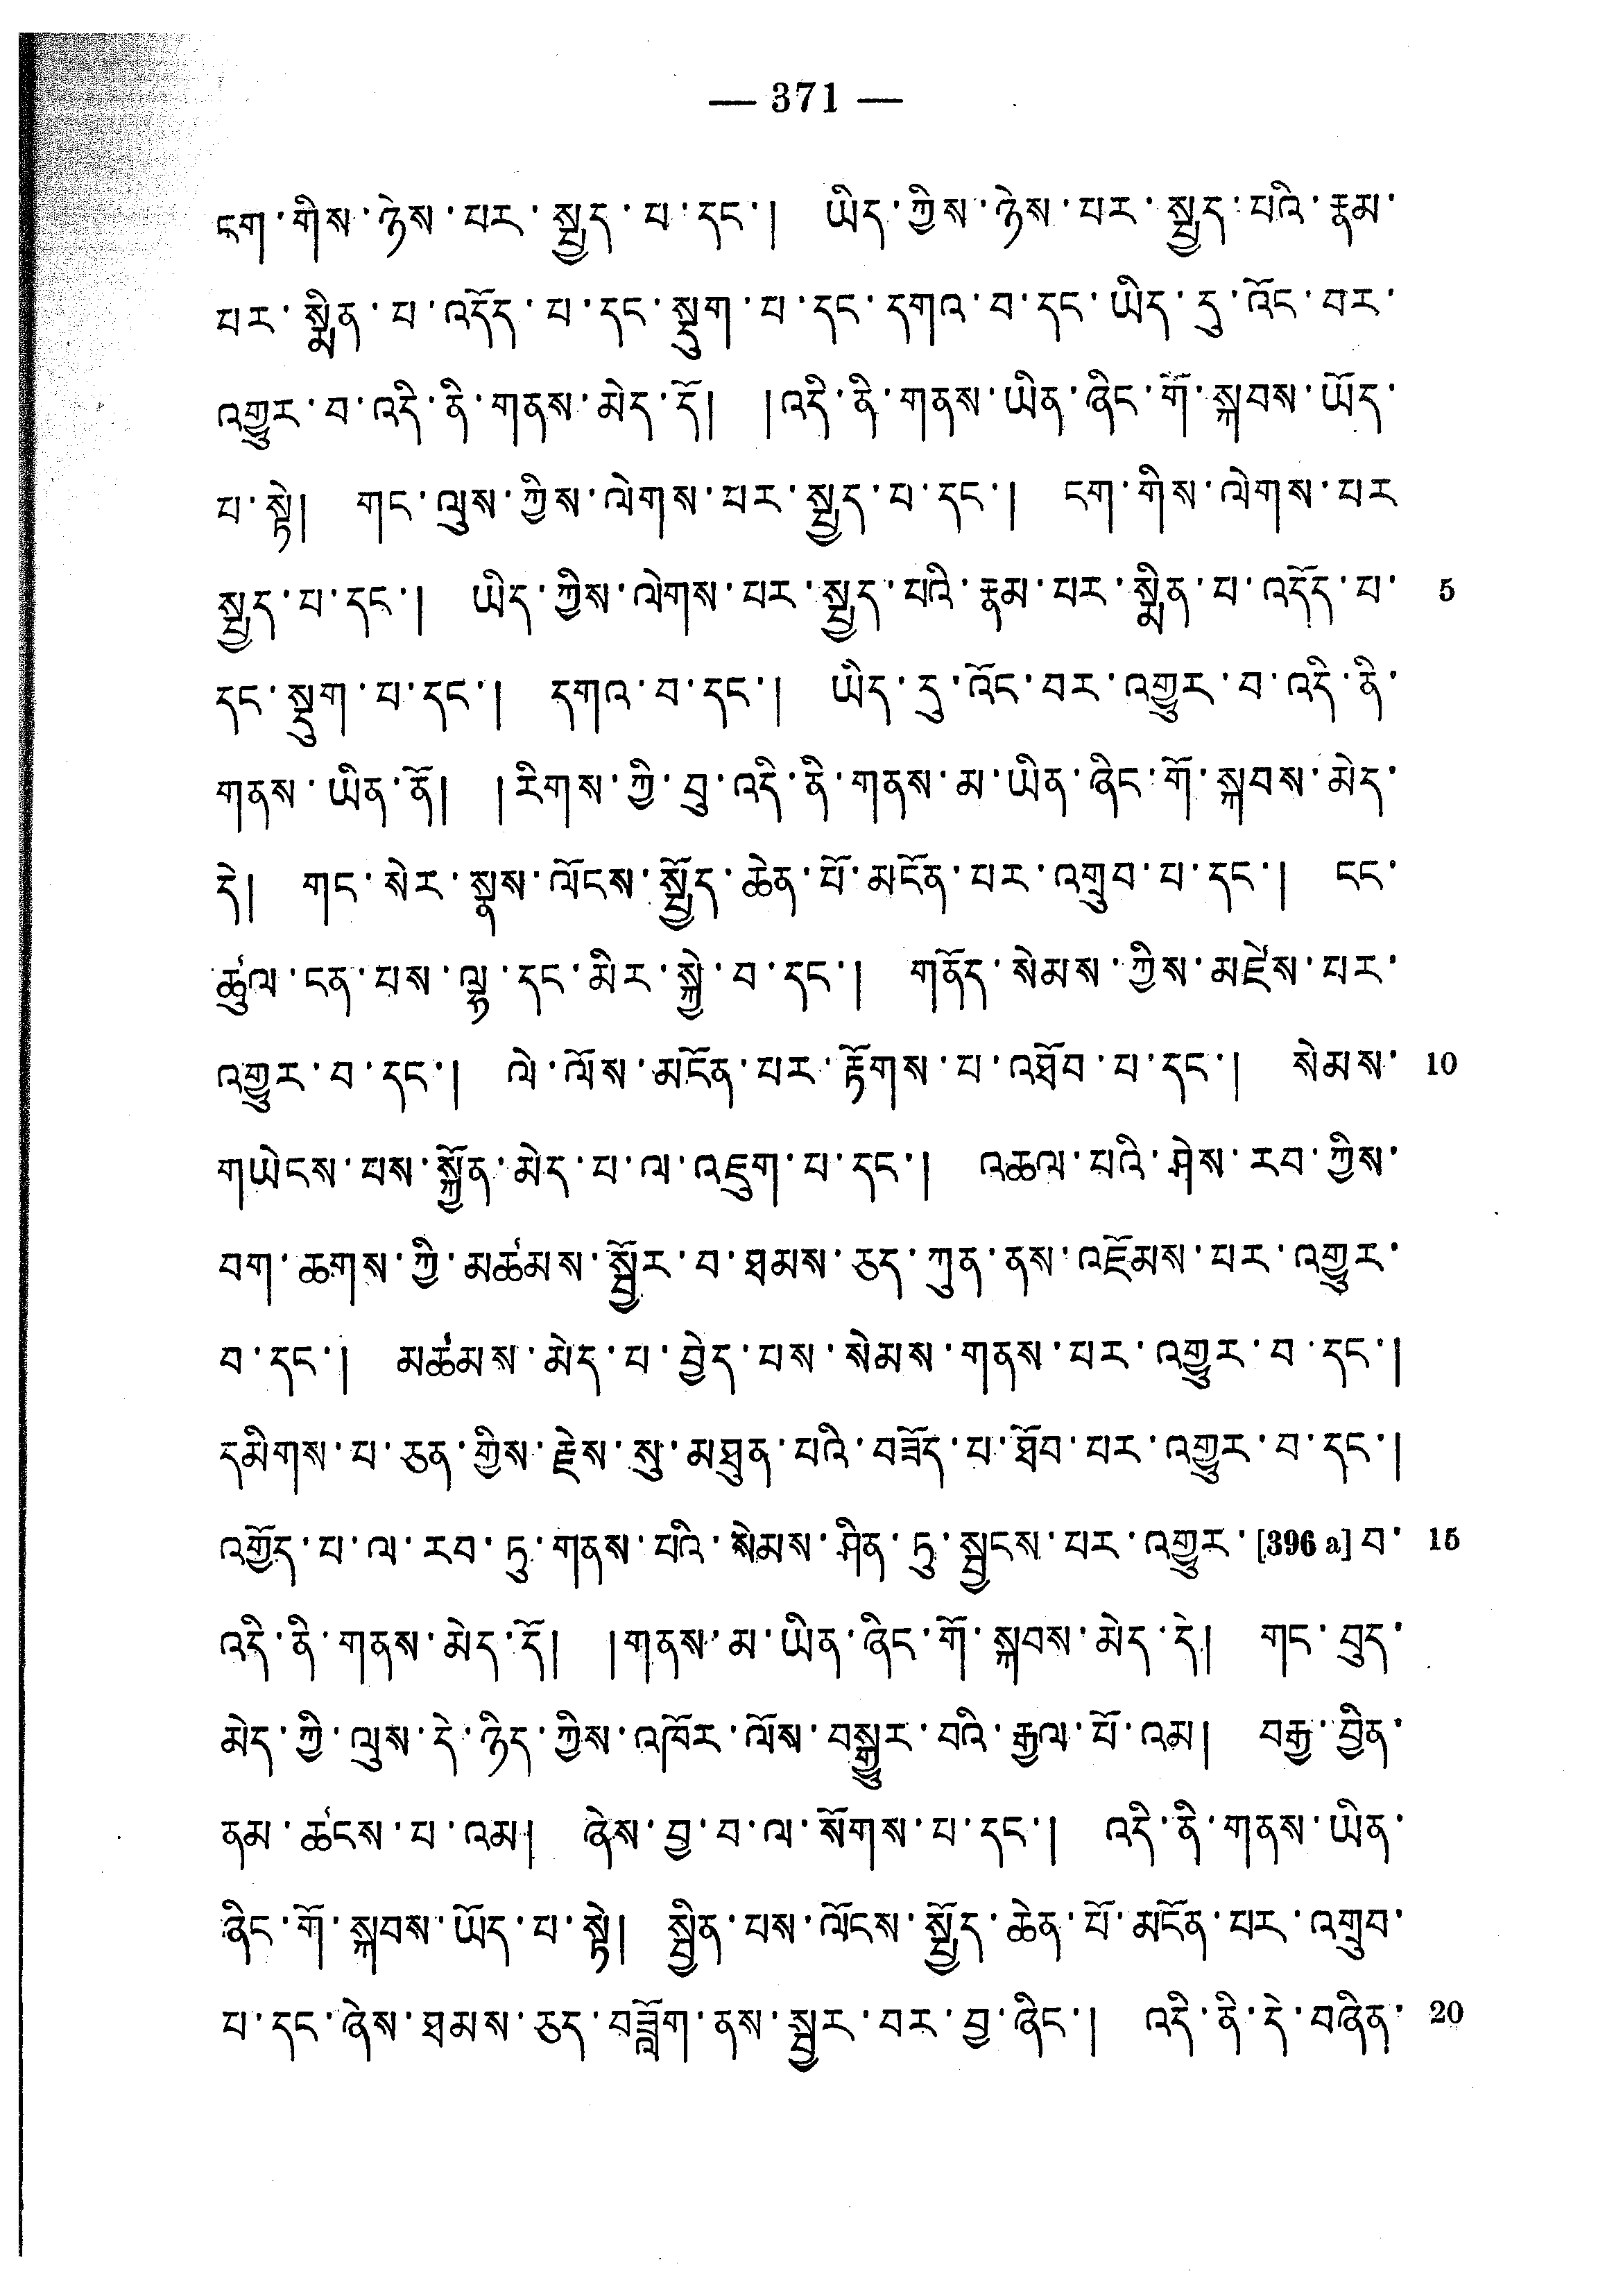 — 371 —
ངག་གིས་ཉེས་པར་སྤྱད་པ་དང་། ཡིད་ཀྱིས་ཉེས་པར་སྤྱད་པའི་རྣམ་
པར་སྨིན་པ་འདོད་པ་དང་སྡུག་པ་དང་དགའ་བ་དང་ཡིད་དུ་འོང་བར་
འགྱུར་བ་འདི་ནི་གནས་མེད་དོ། །འདི་ནི་གནས་ཡིན་ཞིང་གོ་སྐབས་ཡོད་
པ་སྟེ། གང་ལུས་ཀྱིས་ལེགས་པར་སྤྱད་པ་དང་། ངག་གིས་ལེགས་པར
སྤྱད་པ་དང་། ཡིད་ཀྱིས་ལེགས་པར་སྤྱད་པའི་རྣམ་པར་སྨིན་པ་འདོད་པ་ 5
དང་སྡུག་པ་དང་། དགའ་བ་དང་། ཡིད་དུ་འོང་བར་འགྱུར་བ་འདི་ནི་
གནས་ཡིན་ནོ། །རིགས་ཀྱི་བུ་འདི་ནི་གནས་མ་ཡིན་ཞིང་གོ་སྐབས་མེད་
དེ། གང་སེར་སྣས་ལོངས་སྤྱོད་ཆེན་པོ་མངོན་པར་འགྲུབ་པ་དང་། ངང་
ཚུལ་ངན་པས་ལྷ་དང་མིར་སྐྱེ་བ་དང་། གནོད་སེམས་ཀྱིས་མཛེས་པར་
འགྱུར་བ་དང་། ལེ་ལོས་མངོན་པར་རྟོགས་པ་འཐོབ་པ་དང་། སེམས་ 10
གཡེངས་པས་སྐྱོན་མེད་པ་ལ་འཇུག་པ་དང་། འཆལ་པའི་ཤེས་རབ་ཀྱིས་
བག་ཆགས་ཀྱི་མཚམས་སྦྱོར་བ་ཐམས་ཅད་ཀུན་ནས་འཇོམས་པར་འགྱུར་
བ་དང་། མཚམས་མེད་པ་བྱེད་པས་སེམས་གནས་པར་འགྱུར་བ་དང་།
དམིགས་པ་ཅན་གྱིས་རྗེས་སུ་མཐུན་པའི་བཟོད་པ་ཐོབ་པར་འགྱུར་བ་དང་།
འགྱོད་པ་ལ་རབ་ཏུ་གནས་པའི་སེམས་ཤིན་ཏུ་སྦྱངས་པར་འགྱུར་[396 a]བ་ 15
འདི་ནི་གནས་མེད་དོ། །གནས་མ་ཡིན་ཞིང་གོ་སྐབས་མེད་དེ། གང་བུད་
མེད་ཀྱི་ལུས་དེ་ཉིད་ཀྱིས་འཁོར་ལོས་བསྒྱུར་བའི་རྒྱལ་པོ་འམ། བརྒྱ་བྱིན་
ནམ་ཚངས་པ་འམ། ཞེས་བྱ་བ་ལ་སོགས་པ་དང་། འདི་ནི་གནས་ཡིན་
ཞིང་གོ་སྐབས་ཡོད་པ་སྟེ། སྦྱིན་པས་ལོངས་སྤྱོད་ཆེན་པོ་མངོན་པར་འགྲུབ་
པ་དང་ཞེས་ཐམས་ཅད་བཟློག་ནས་སྦྱར་བར་བྱ་ཞིང་། འདི་ནི་དེ་བཞིན་ 20